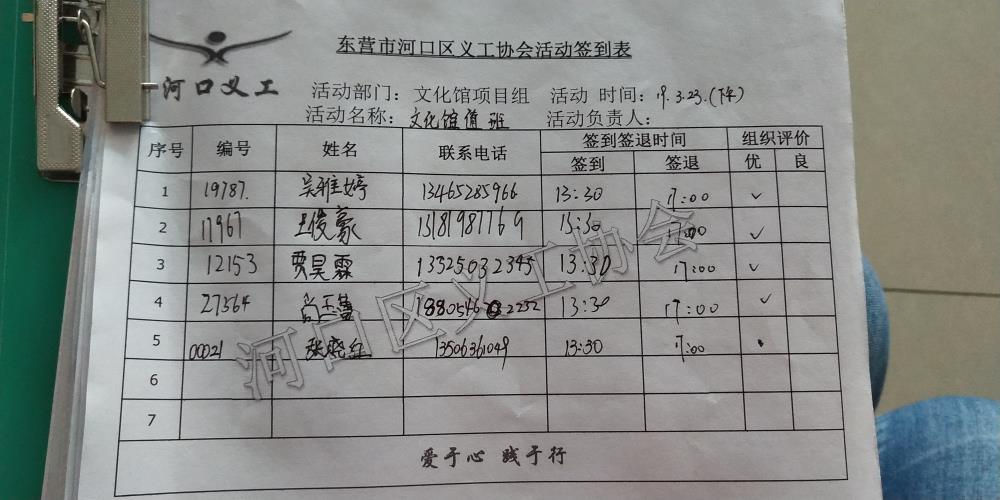 东营市河口区义工协会活动签到表
河口义工
活动部门：文化馆项目组 活动 时间：19.3.23.(下午)
活动名称：文化馆值班 活动负责人：
序号 编号 姓名 联系电话 签到签退时间 组织评价
签到 签退 优 良
1 19787. 吴雅婷 13465285966 13:30 17:00 ✓
2 17967 王俊豪 13181987769 13:30 17:00 ✓
3 12153 贾昊霖 13325032345 13:30 17:00 ✓
4 27364 18805462252 13:30 17:00 ✓
5 00021 张晓红 13506361049 13:30 17:00
6
7
爱于心 践于行
河口区义工协会